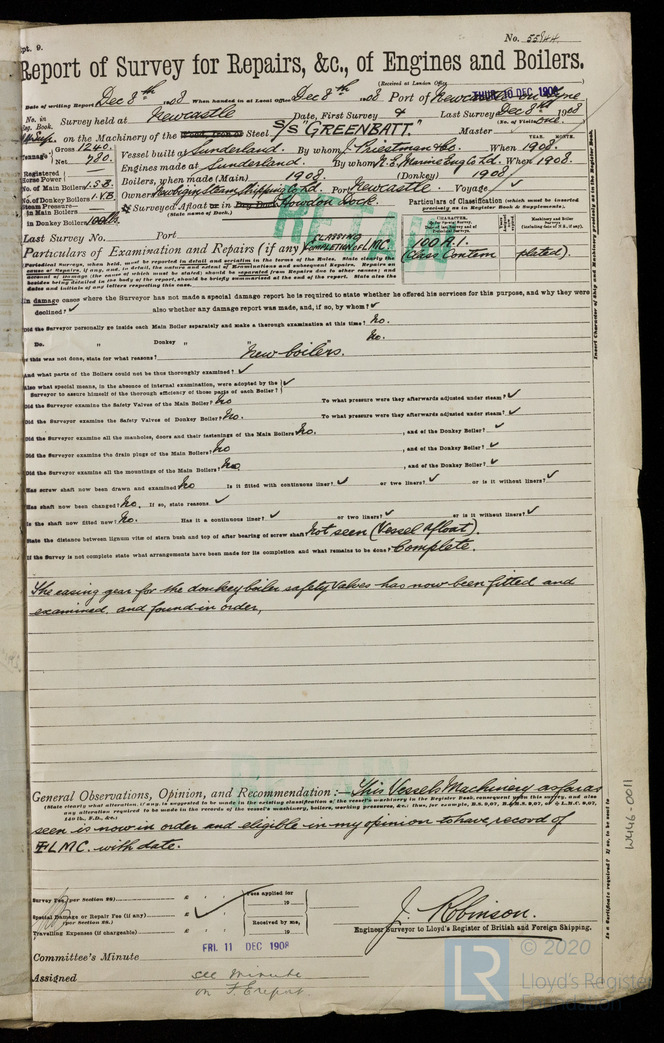 pt. 9.
No. 55844.
Report of Survey for Repairs, &c., of Engines and Boilers.
(Received at London Office)
THUR. 10 DEC 1908
Date of writing Report Dec 8th 1908 When handed in at Local Office Dec 8th 1908 Port of Newcastle on Tyne
No. in Reg. Book. Survey held at Newcastle Date, First Survey & Last Survey Dec 8th 1908
(No. of Visits one.)
on the Machinery of the Wood, Iron or Steel S/S "GREENBATT." Master
Tonnage Gross 1240. Net 780. Vessel built at Sunderland. By whom J. Priestman & Co. When 1908. YEAR. MONTH.
Registered Horse Power Engines made at Sunderland. By whom N.E. Marine Eng Co Ld. When 1908.
No. of Main Boilers 1.S.B. Boilers, when made (Main) 1908. (Donkey) 1908
No. of Donkey Boilers 1.V.B. Owners Steam Shipping Co Ld. Port Newcastle. Voyage ✓
Steam Pressure— in Main Boilers
in Donkey Boilers 100 lb. Surveyed Afloat or in Dry Dock Howdon Dock.
(State name of Dock.)
Particulars of Classification (which must be inserted precisely as in Register Book & Supplements).
Last Survey No. Port
Particulars of Examination and Repairs (if any) CLASSING COMPLETION OF L.M.C. 100 A.1. (Class Contemplated).
In damage cases where the Surveyor has not made a special damage report he is required to state whether he offered his services for this purpose, and why they were
declined? ✓ also whether any damage report was made, and, if so, by whom? ✓
Did the Surveyor personally go inside each Main Boiler separately and make a thorough examination at this time? No.
Do. " Donkey " " No.
If this was not done, state for what reasons? New boilers.
And what parts of the Boilers could not be thus thoroughly examined? ✓
Also what special means, in the absence of internal examination, were adopted by the Surveyor to assure himself of the thorough efficiency of those parts of each Boiler? ✓
Did the Surveyor examine the Safety Valves of the Main Boiler? No To what pressure were they afterwards adjusted under steam? ✓
Did the Surveyor examine the Safety Valves of Donkey Boiler? No. To what pressure were they afterwards adjusted under steam? ✓
Did the Surveyor examine all the manholes, doors and their fastenings of the Main Boilers No. , and of the Donkey Boiler? ✓
Did the Surveyor examine the drain plugs of the Main Boilers? No , and of the Donkey Boiler? ✓
Did the Surveyor examine all the mountings of the Main Boilers? No , and of the Donkey Boiler? ✓
Has screw shaft now been drawn and examined? No Is it fitted with continuous liner? ✓ or two liners? ✓ or is it without liners? ✓
Has shaft now been changed? No. If so, state reasons ✓
Is the shaft now fitted new? No. Has it a continuous liner? ✓ or two liners? ✓ or is it without liners? ✓
State the distance between lignum vitæ of stern bush and top of after bearing of screw shaft Not seen (Vessel Afloat).
If the Survey is not complete state what arrangements have been made for its completion and what remains to be done? Complete.
The easing gear for the donkey boiler safety valves has now been fitted and
examined, and found in order,
General Observations, Opinion, and Recommendation :— This Vessels Machinery as far as
seen is now in order and eligible in my opinion to have record of
LMC. with date.
Survey Fee (per Section 28) £ : : Fees applied for 19
Special Damage or Repair Fee (if any) £ : :
(per Section 28.)
Travelling Expenses (if chargeable) £ : : Received by me, 19
J. Robinson.
Engineer Surveyor to Lloyd's Register of British and Foreign Shipping.
Committee's Minute FRI. 11 DEC 1908
Assigned see minute
on F.E. report.
Insert Character of Ship and Machinery precisely as in the Register Book.
Is a Certificate required? If so, to be sent to
W446-0011
LR
© 2020
Lloyd's Register
Foundation